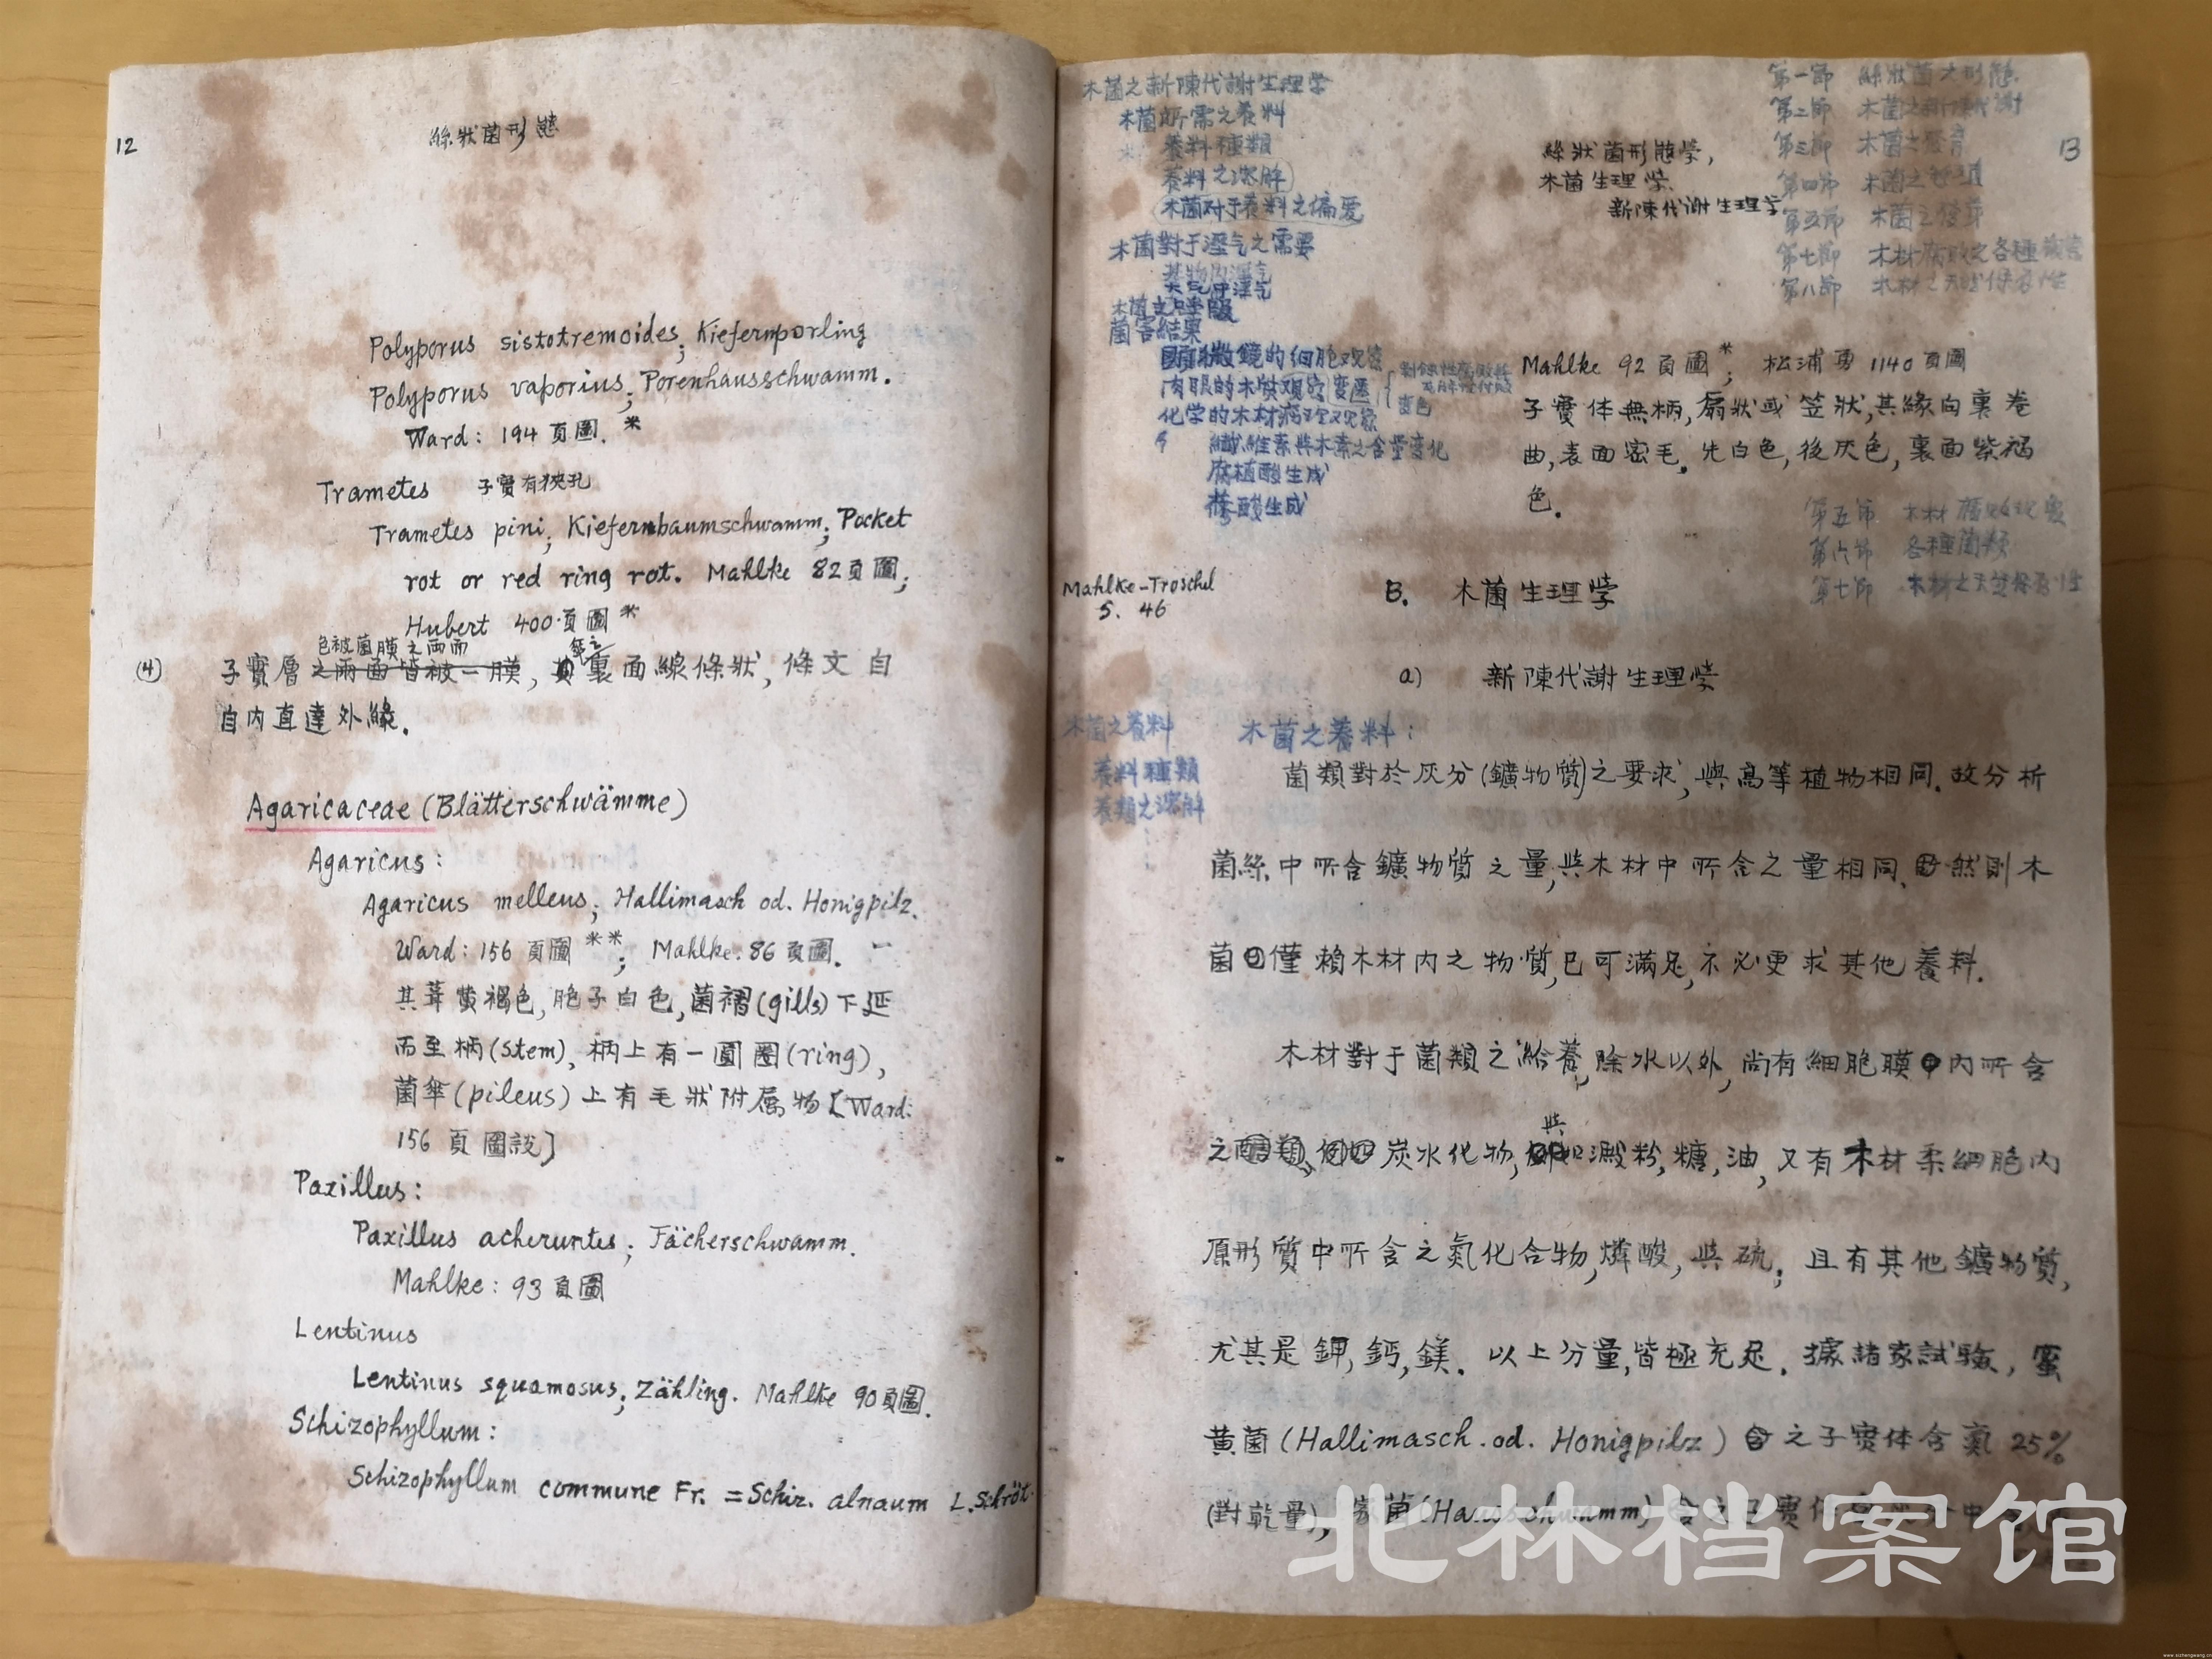 12
絲狀菌形態
Polyporus sistotremoides; Kiefernporling
Polyporus vaporius; Porenhausschwamm.
Ward: 194 頁圖.*
Trametes 子實有狹孔
Trametes pini; Kiefernbaumschwamm; Pocket
rot or red ring rot. Mahlke 82頁圖;
Hubert 400頁圖*
色被菌膜之両面
(4) 子實層之両面皆被一膜, 裏面線條狀, 條文自
自内直達外緣.
Agaricaceae (Blätterschwämme)
Agaricus:
Agaricus melleus; Hallimasch od. Honigpilz.
Ward: 156 頁圖**; Mahlke: 86 頁圖.
其蓋黄褐色, 胞子白色, 菌褶(gills)下延
而至柄(stem), 柄上有一圓圈(ring),
菌傘(pileus)上有毛狀附属物[Ward:
156 頁圖説]
Paxillus:
Paxillus acheruntes; Fächerschwamm.
Mahlke: 93 頁圖
Lentinus
Lentinus squamosus; Zähling. Mahlke 90頁圖.
Schizophyllum:
Schizophyllum commune Fr. = Schiz. alnaum L. Schröt.
13
木菌之新陳代謝生理学
木菌所需之養料
養料種類
養料之溶解
木菌对于養料之偏爱
木菌對于溼气之需要
菌害結果
顕微鏡的细胞观察
肉眼的木質观察变色
化学的木材
纖維素與木素之含量变化
腐植酸生成
蓚酸生成
絲狀菌形態学,
木菌生理学
新陳代謝生理学
第一節 絲狀菌之形態
第二節 木菌之新陳代謝
第三節 木菌之發育
第四節 木菌之
第五節 木菌之
第七節 木材腐敗之各種
第八節 木材之天然保存性
Mahlke 92 頁圖*; 松浦勇 1140 頁圖
子實体無柄, 扇狀或笠狀, 其緣向裏卷
曲, 表面密毛. 先白色, 後灰色, 裏面紫褐
色.
第五節 木材
第六節 各種菌類
第七節 木材之天然保存性
Mahlke-Troschel
S. 46
B. 木菌生理学
a) 新陳代謝生理学
木菌之養料
養料種類
養類之溶解
木菌之養料:
菌類對於灰分(鑛物質)之要求, 與高等植物相同. 故分析
菌絲中所含鑛物質之量, 與木材中所含之量相同. 然則木
菌僅賴木材内之物質, 已可滿足, 不必更求其他養料.
木材對于菌類之給養, 除水以外, 尚有細胞膜内所含
之 炭水化物, 與澱粉, 糖, 油, 又有木材柔細胞内
原形質中所含之氮化合物, 燐酸, 與硫; 且有其他鑛物質,
尤其是鉀, 鈣, 鎂. 以上分量, 皆極充足. 據諸家試驗, 蜜
黄菌(Hallimasch. od. Honigpilz)之子實体含氮 25%
(對乾量), 家菌(Hausschwamm)之子實体
北林档案馆